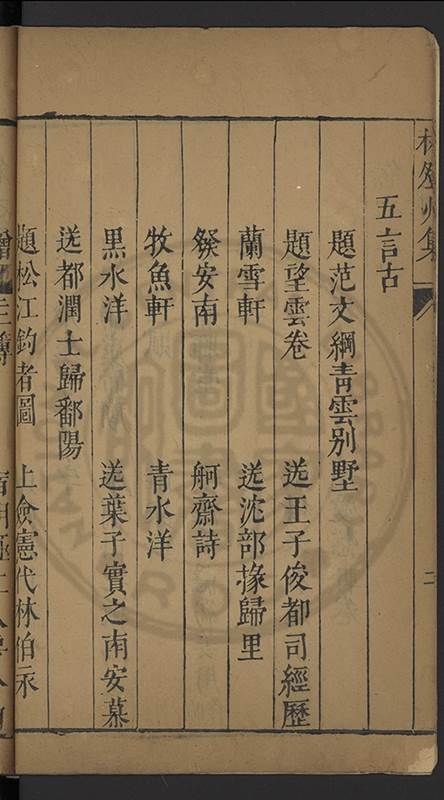 林登州集
五言古
題范文綱青雲別墅
題望雲卷　送王子俊都司經歷
蘭雪軒　送沈部掾歸里
發安南　舸齋詩
牧魚軒　青水洋
黑水洋　送葉子實之南安幕
送都潤士歸鄱陽
題松江釣者圖　上僉憲代林伯永